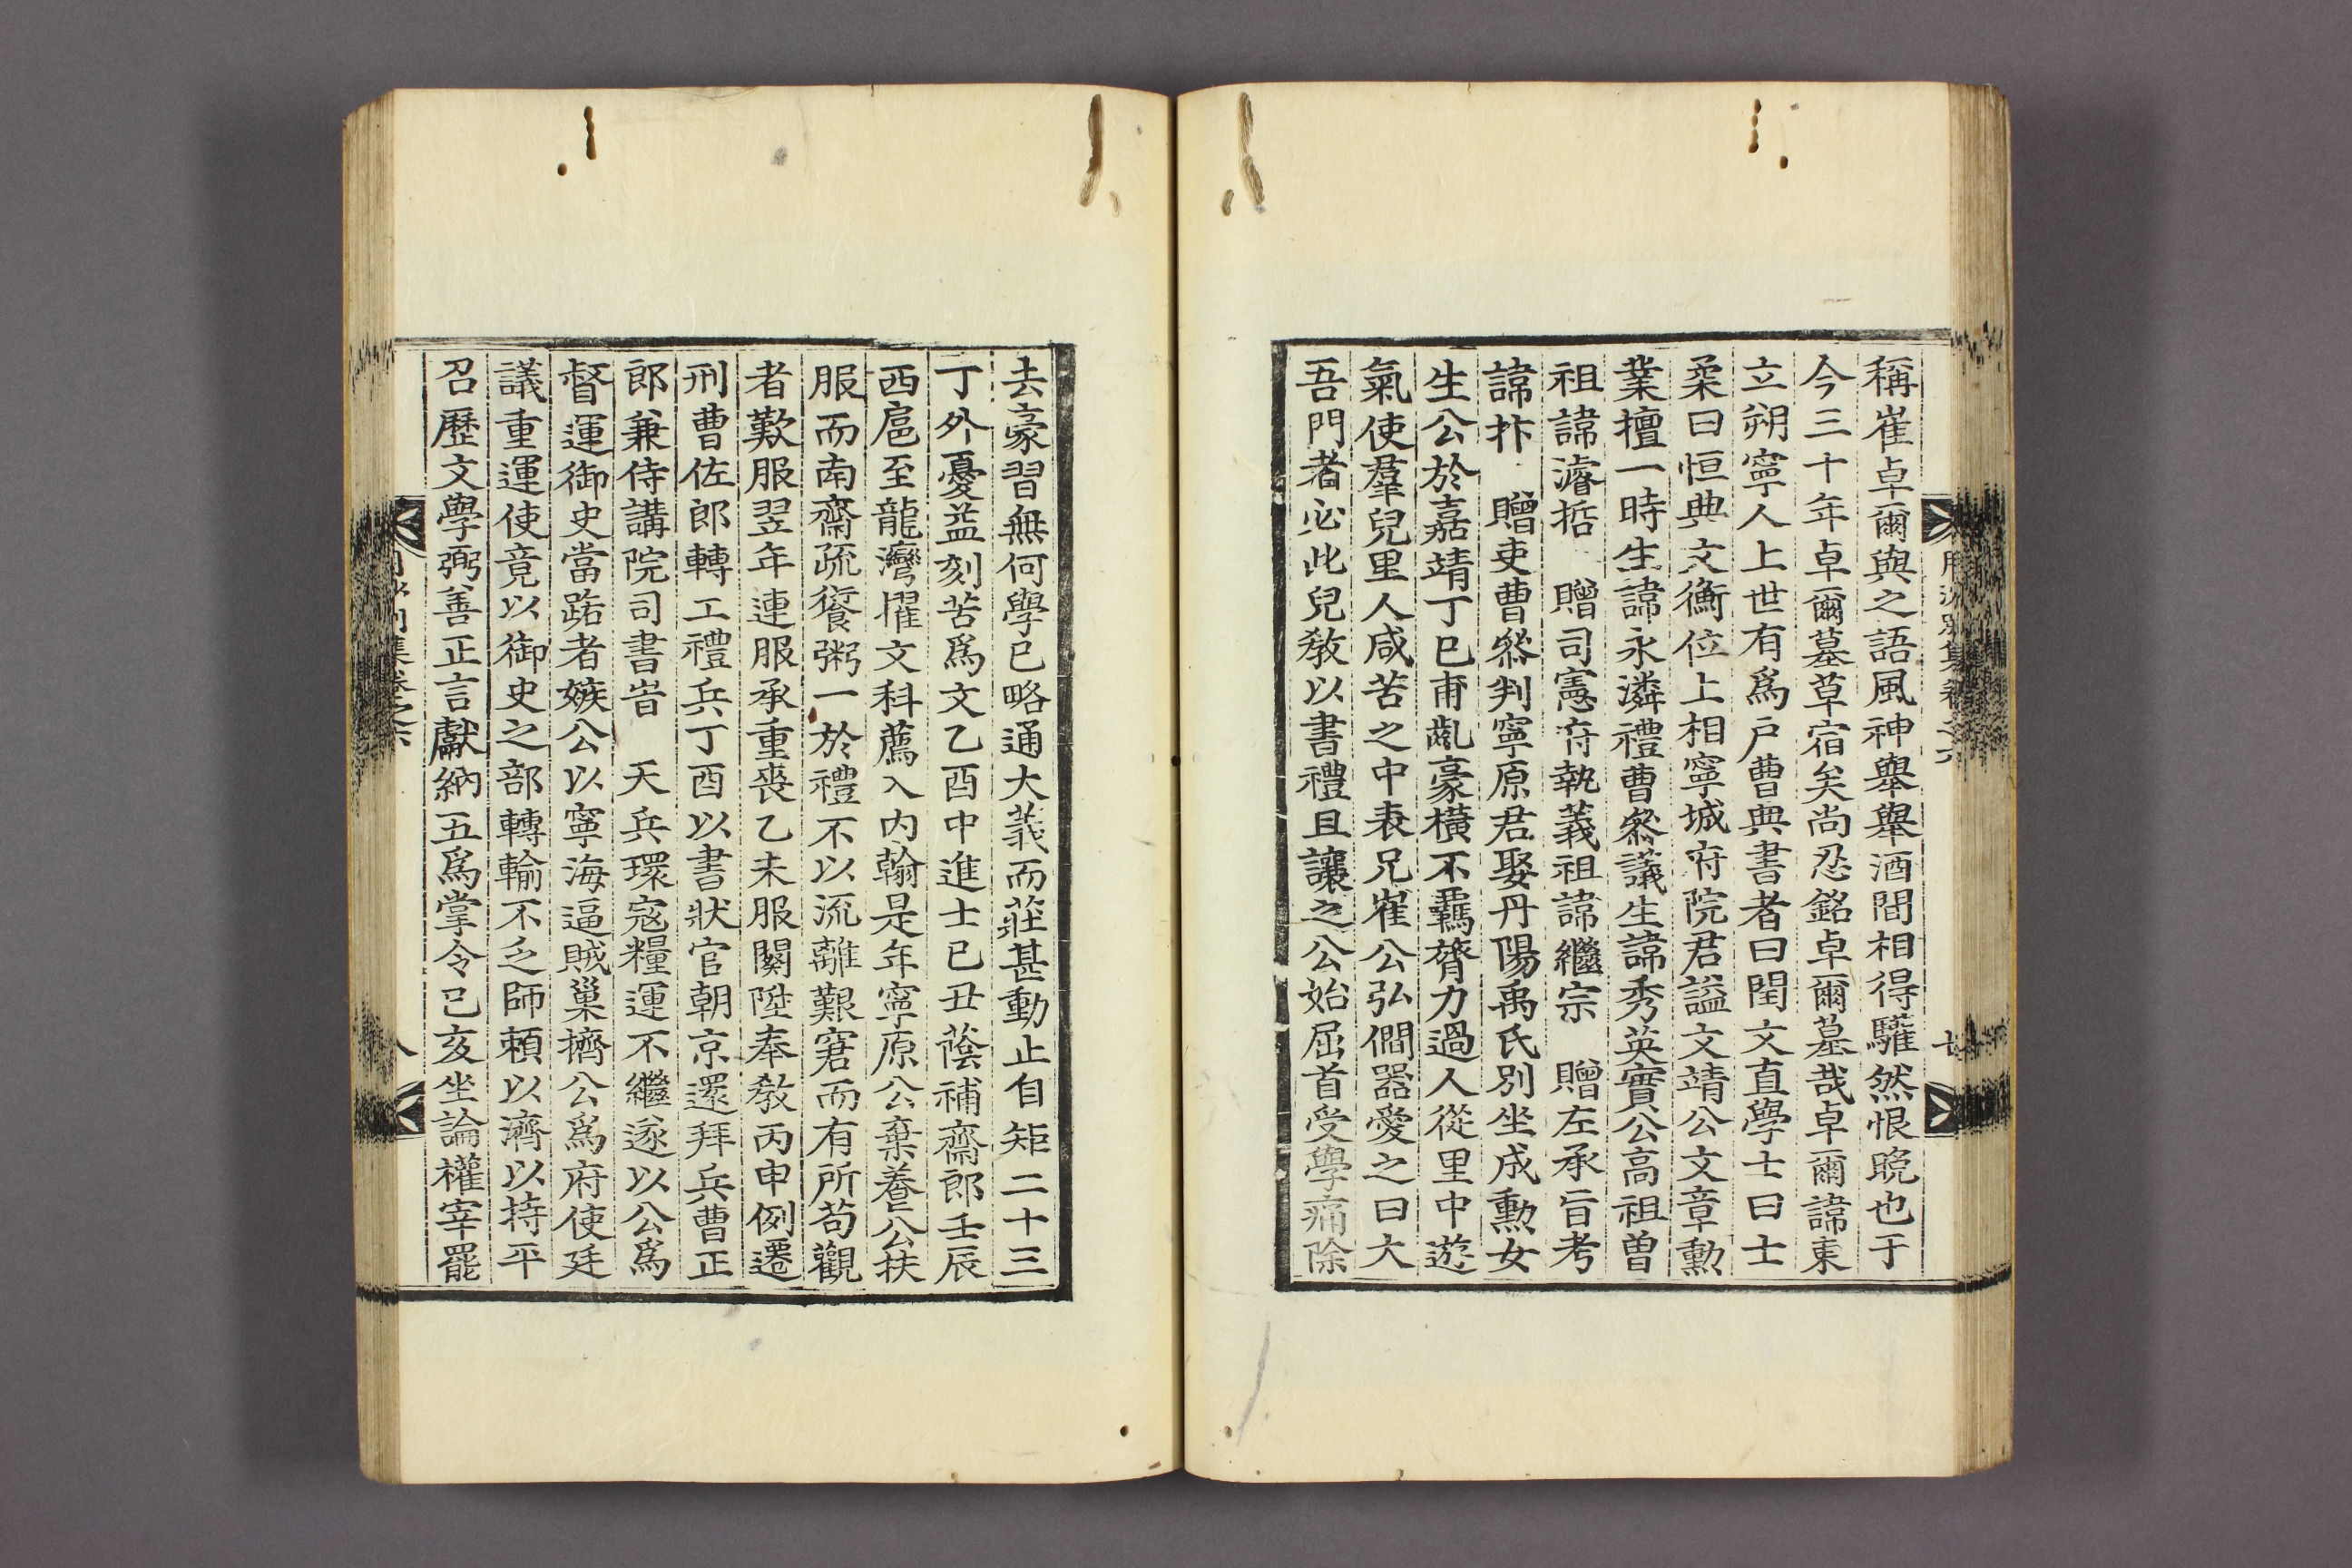 稱崔卓爾與之語風神舉舉酒間相得驩然恨晩也于
今三十年卓爾墓草宿矣尚忍銘卓爾墓哉卓爾諱東
立朔寧人上世有爲戶曹典書者曰閏文直學士曰士
柔曰恒典文衡位上相寧城府院君諡文靖公文章勳
業擅一時生諱永潾禮曹叅議生諱秀英實公高祖曾
祖諱濬哲 贈司憲府執義祖諱繼宗 贈左承旨考
諱抃 贈吏曹叅判寧原君娶丹陽禹氏別坐成勳女
生公於嘉靖丁巳甫亂豪橫不羈膂力過人從里中遊
氣使羣兒里人咸苦之中表兄崔公弘僩器愛之曰大
吾門者必此兒敎以書禮且讓之公始屈首受學痛除
去豪習無何學已略通大義而莊甚動止自矩二十三
丁外憂益刻苦爲文乙酉中進士已丑蔭補齋郎壬辰
西扈至龍灣擢文科薦入内翰是年寧原公棄養公扶
服而南齋疏飱粥一於禮不以流離艱窘而有所苟觀
者歎服翌年連服承重喪乙未服闋陞奉敎丙申例遷
刑曹佐郎轉工禮兵丁酉以書狀官朝京還拜兵曹正
郎兼侍講院司書旹 天兵環寇糧運不繼遂以公爲
督運御史當路者嫉公以寧海逼賊巢擠公爲府使廷
議重運使竟以御史之部轉輸不乏師頼以濟以持平
召歷文學弼善正言獻納五爲掌令己亥坐論權宰罷